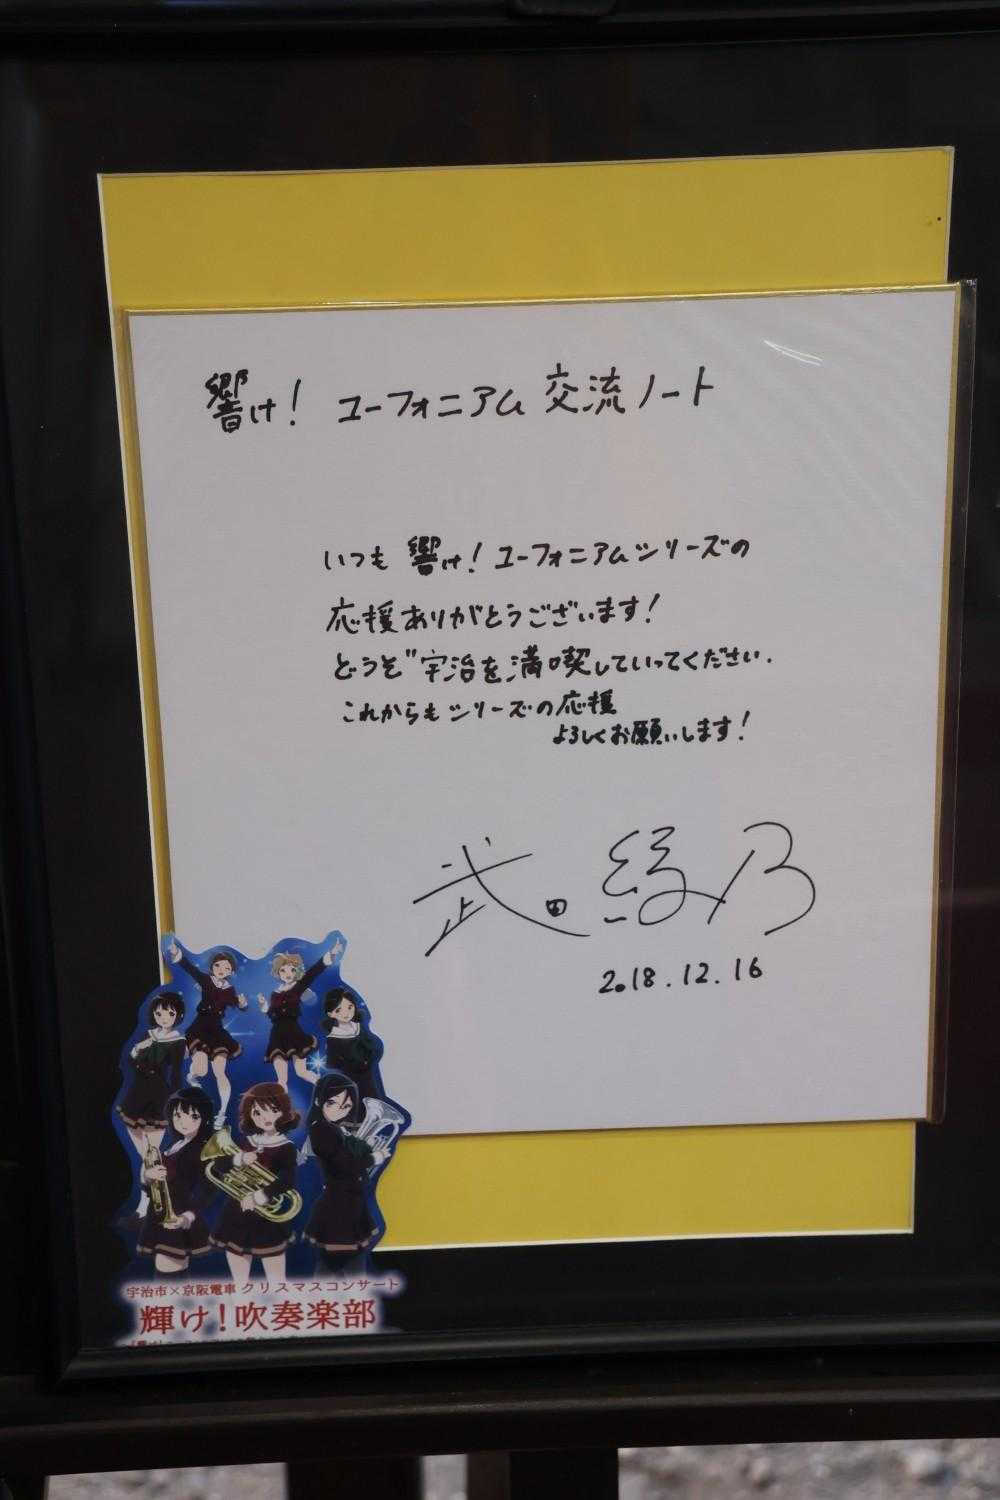 響け! ユーフォニアム 交流ノート
いつも 響け! ユーフォニアムシリーズの
応援ありがとうございます!
どうぞ宇治を満喫していってください.
これからもシリーズの応援
よろしくお願いします!
武田綾乃
2018.12.16
宇治市×京阪電車 クリスマスコンサート
輝け!吹奏楽部